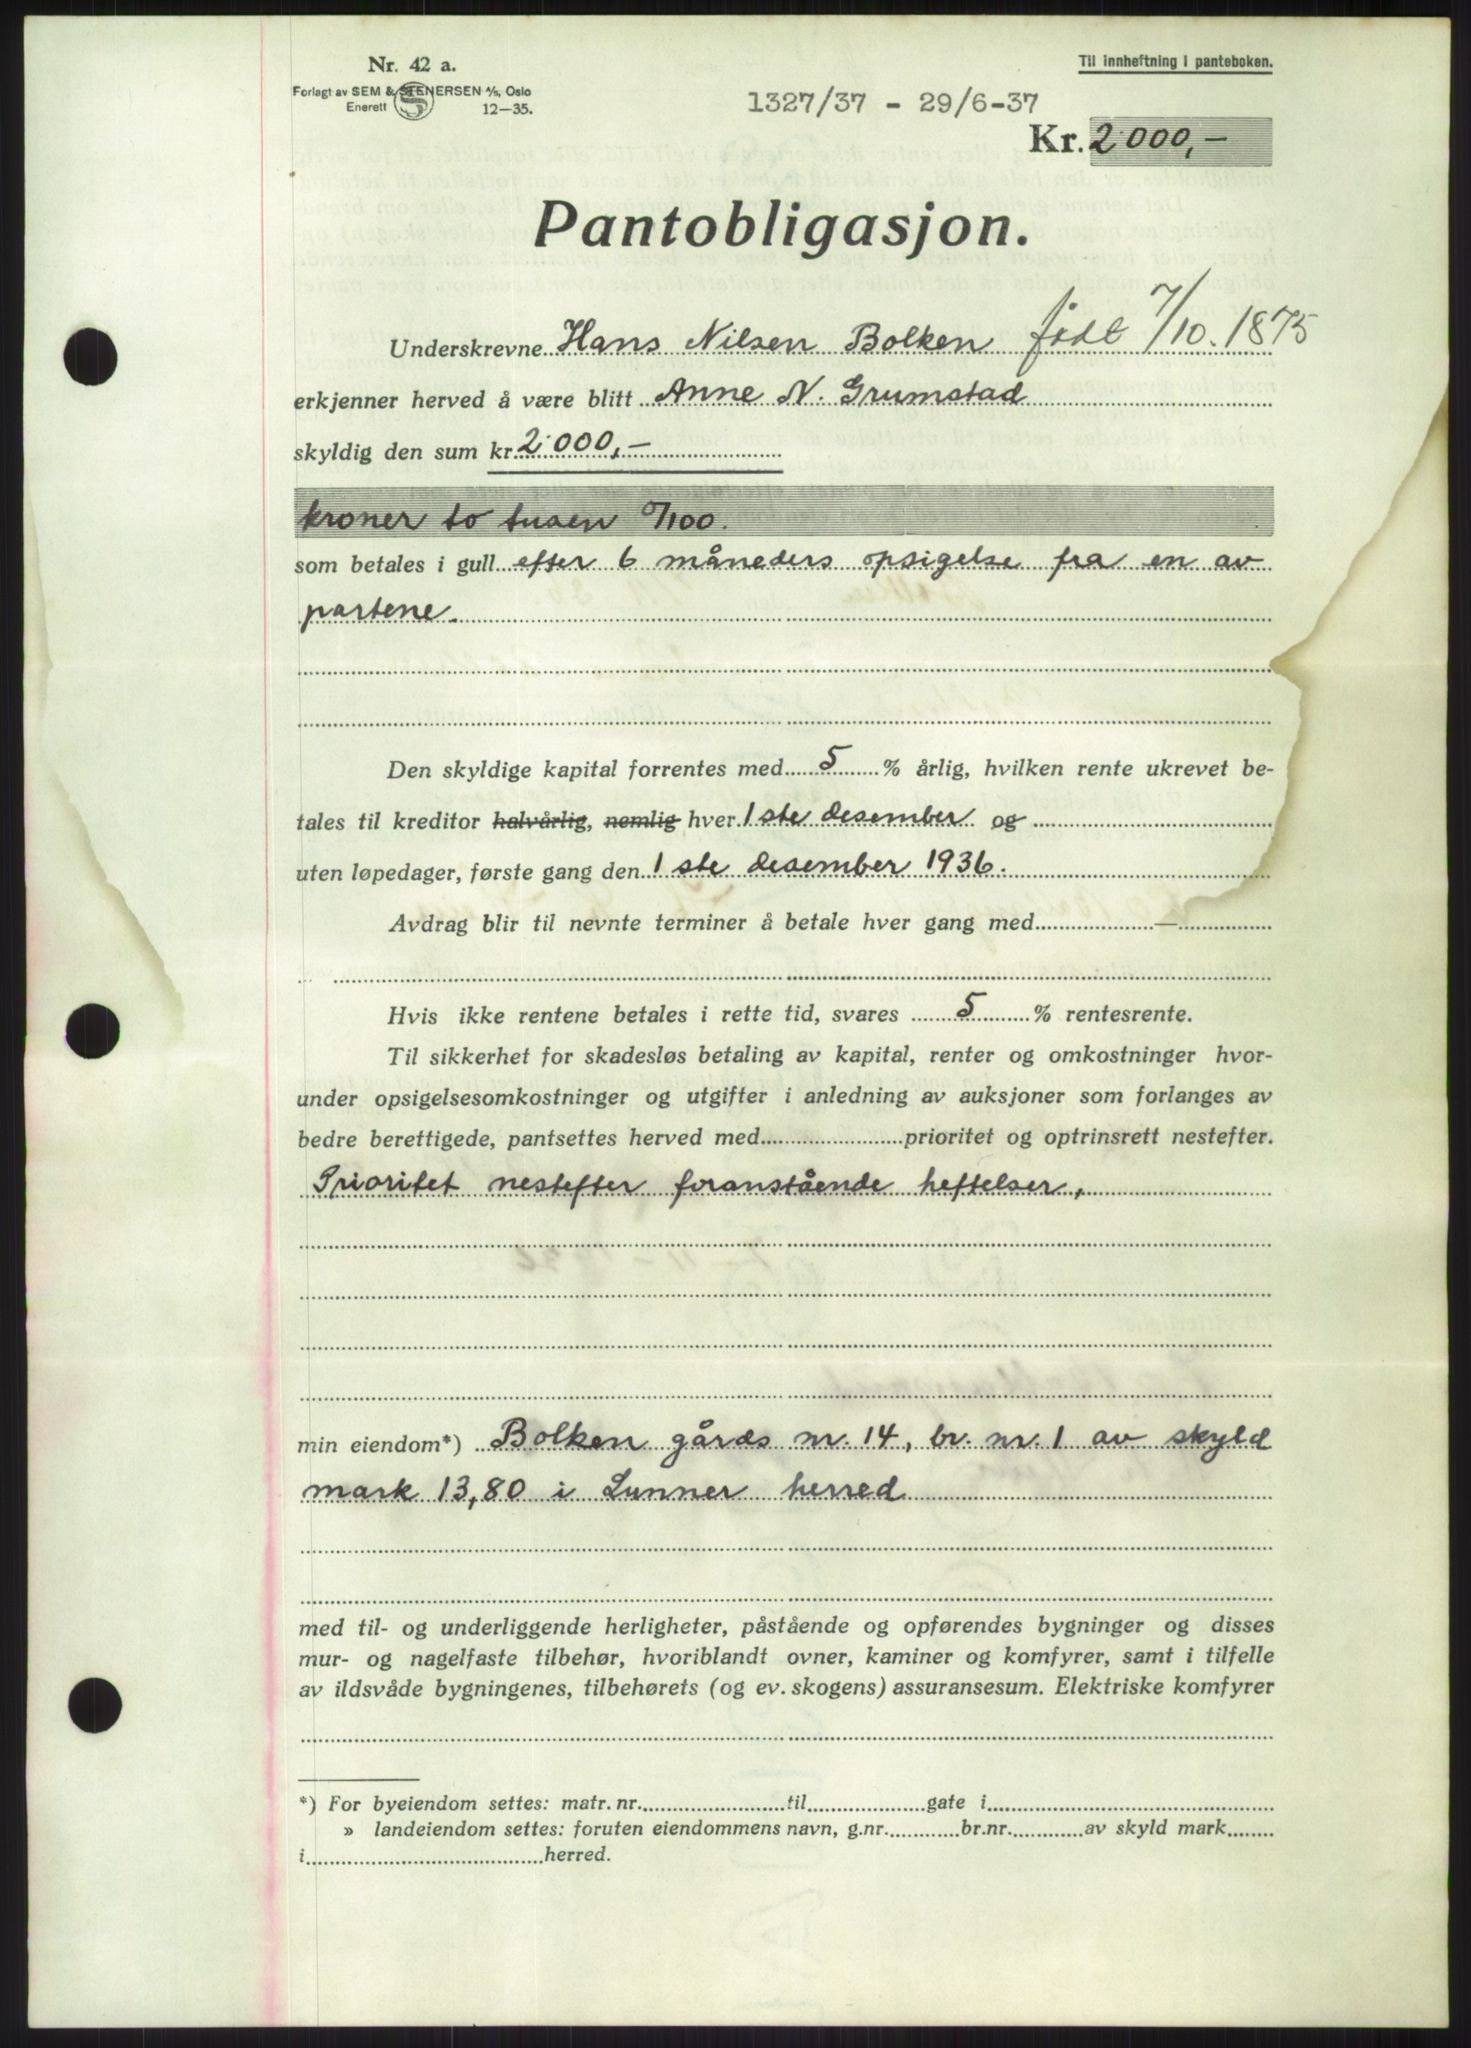 Nr. 42 a.
Forlagt av SEM & STENERSEN A/S, Oslo
Enerett 12—35.
Til innheftning i panteboken.
1327/37 - 29/6-37
Kr. 2000,-
Pantobligasjon.
Underskrevne Hans Nilsen Bolken født 7/10. 1875
erkjenner herved å være blitt Anne N. Grumstad
skyldig den sum kr. 2000,-
kroner to tusen 0/100.
som betales i gull efter 6 måneders opsigelse fra en av
partene.
Den skyldige kapital forrentes med 5 % årlig, hvilken rente ukrevet be-
tales til kreditor halvårlig, nemlig hver 1ste desember og
uten løpedager, første gang den 1ste desember 1936.
Avdrag blir til nevnte terminer å betale hver gang med —
Hvis ikke rentene betales i rette tid, svares 5 % rentesrente.
Til sikkerhet for skadesløs betaling av kapital, renter og omkostninger hvor-
under opsigelsesomkostninger og utgifter i anledning av auksjoner som forlanges av
bedre berettigede, pantsettes herved med prioritet og optrinsrett nestefter.
Prioritet nestefter foranstående heftelser,
min eiendom*) Bolken gårds nr. 14, br. nr. 1 av skyld
mark 13,80 i Lunner herred
med til- og underliggende herligheter, påstående og opførendes bygninger og disses
mur- og nagelfaste tilbehør, hvoriblandt ovner, kaminer og komfyrer, samt i tilfelle
av ildsvåde bygningenes, tilbehørets (og ev. skogens) assuransesum. Elektriske komfyrer
*) For byeiendom settes: matr. nr. til gate i
» landeiendom settes: foruten eiendommens navn, g.nr. br.nr. av skyld mark
i herred.